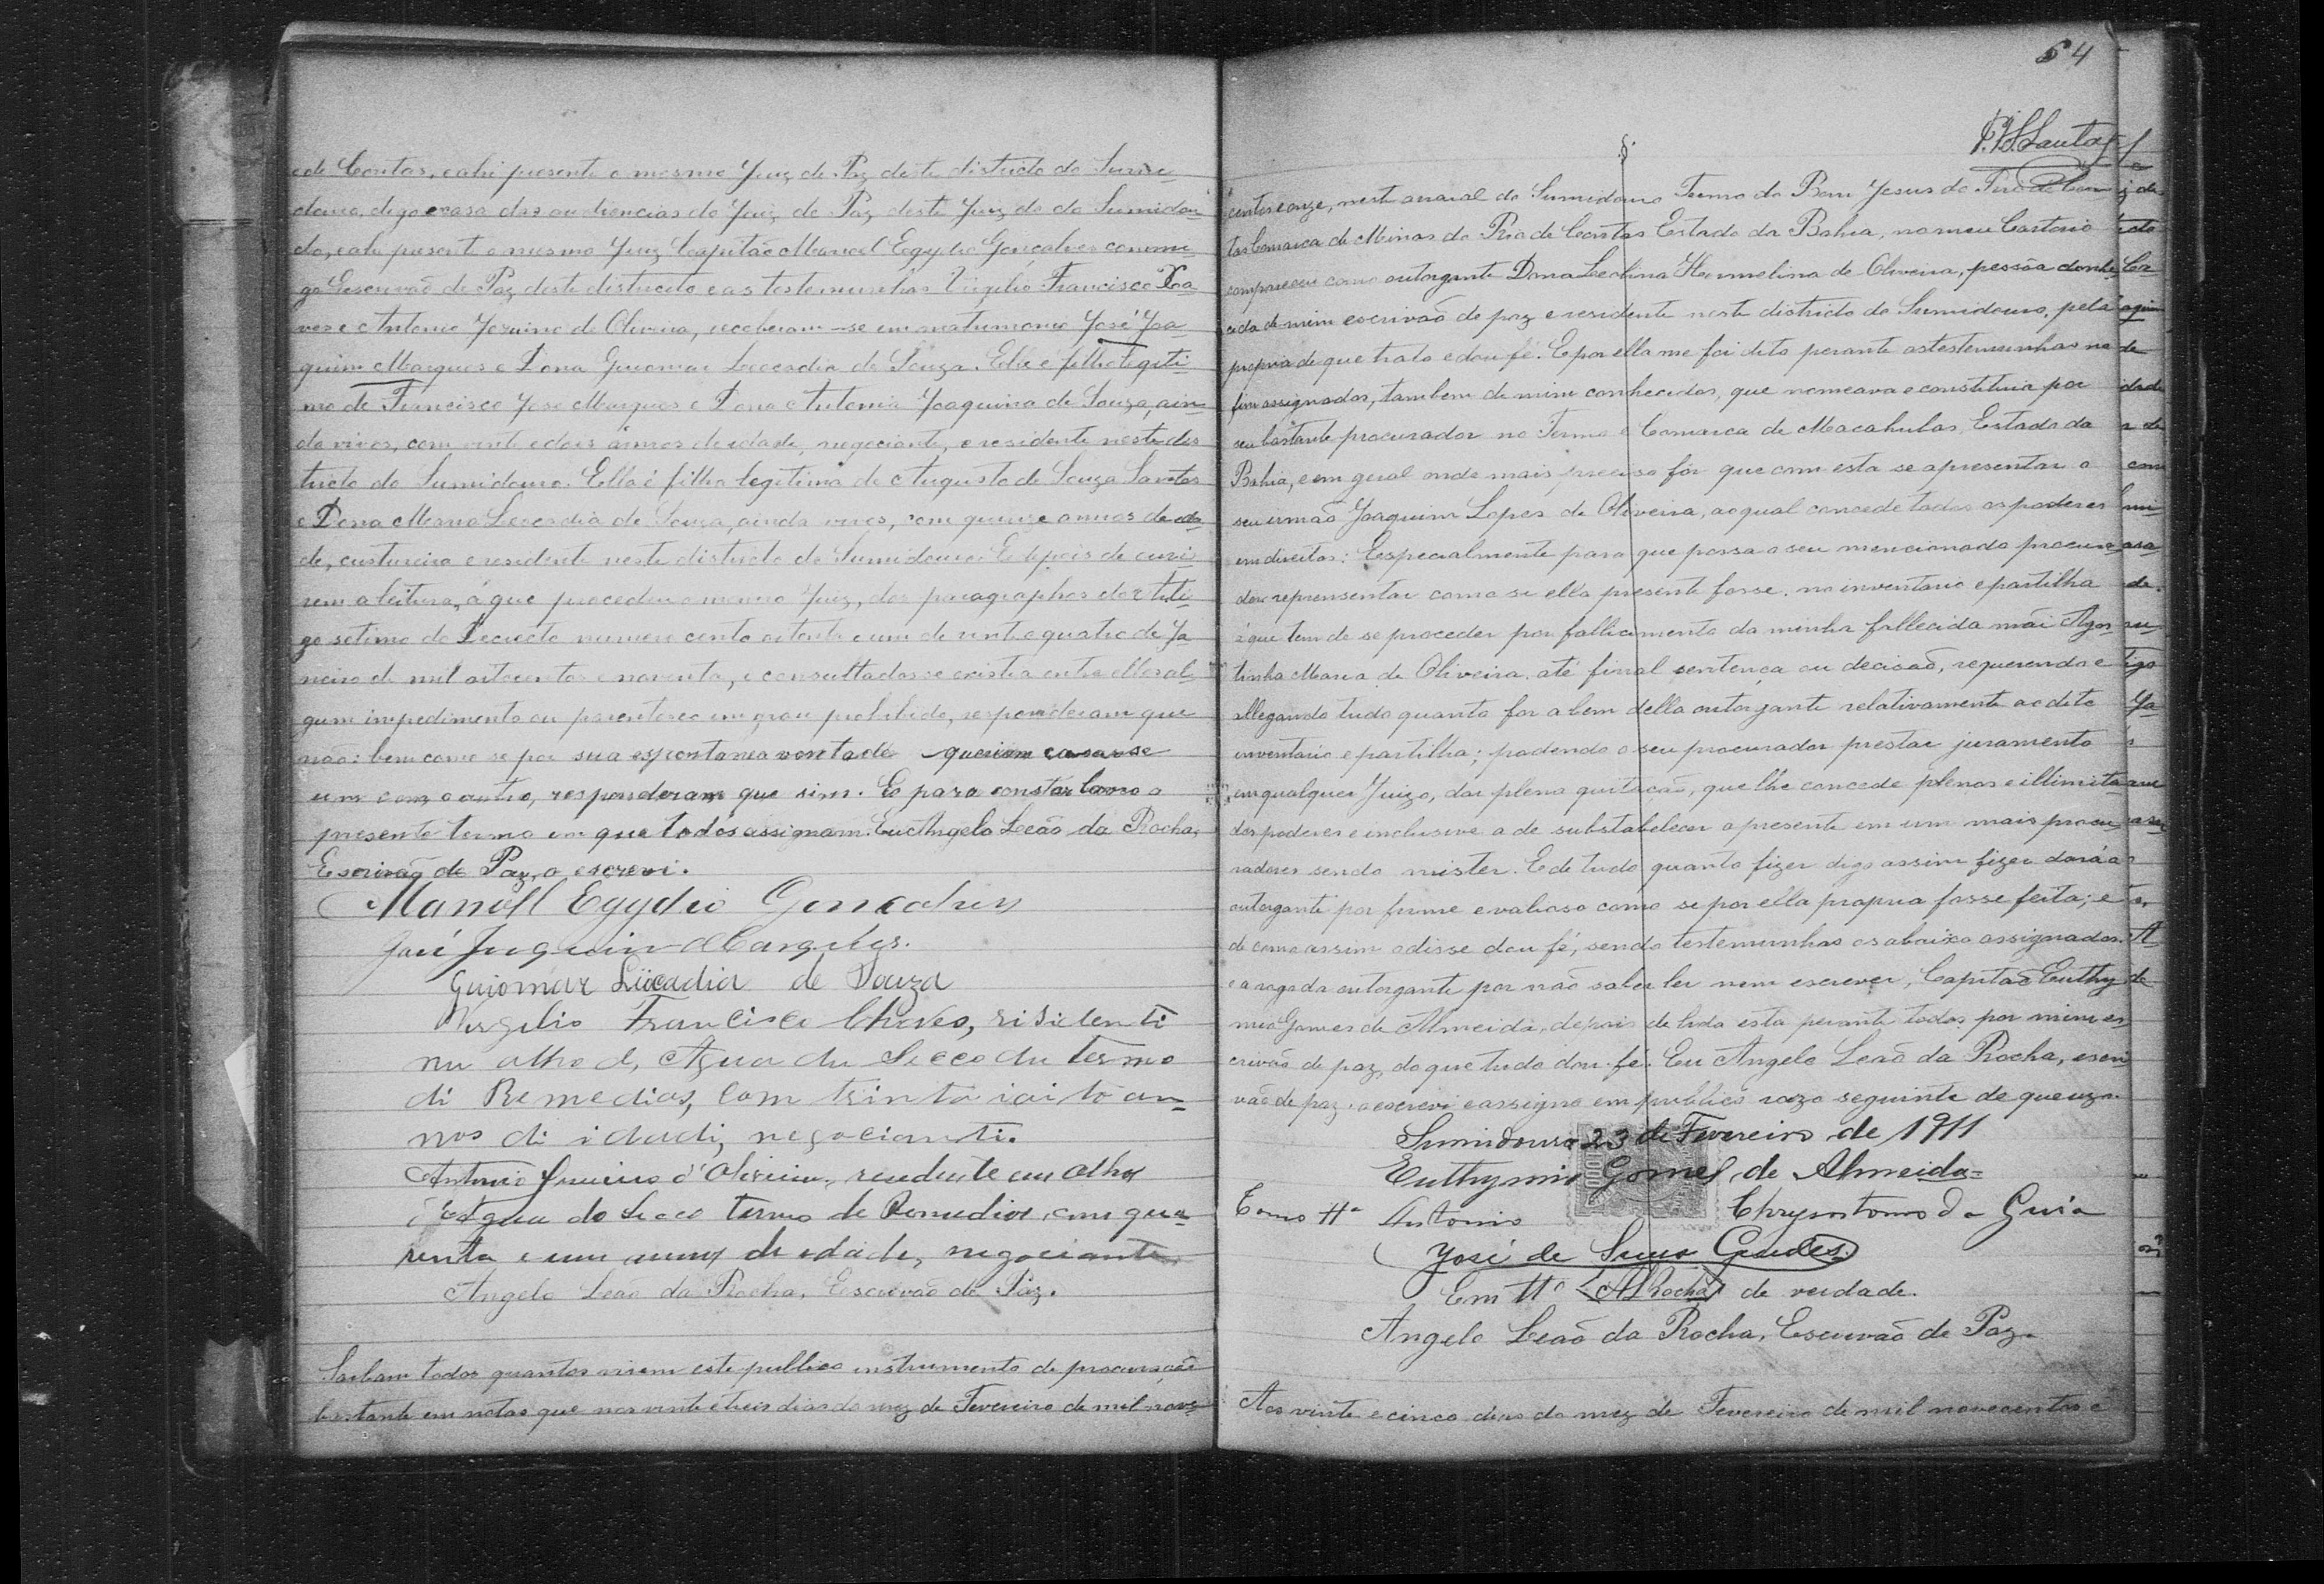 de Contas, e ahi presente o mesmo Juiz de Paz deste districto do Sumi-
douro, digo e casa das audiencias do Juiz de Paz deste Juiz do do Sumidou-
do, e ahi presente o mesmo Juiz Capitão Manoel Egydio Gonçalves commi-
go Escrivão de Paz deste districto e as testemunhas Virgilio Francisco Xa-
ves e Antonio de Oliveira, receberam-se em matrimonio José Joa-
quim Marques e Dona Guiomar Leocadia de Souza. Elle é filho legiti-
mo de Francisco José Marques e Dona Antonia Joaquina de Souza, ain-
da vivos, com vinte e dois annos de idade, negociante, e residente neste dis-
tricto do Sumidouro. Ella é filha legitima de Augusto de Souza Santos
e Dona Maria Leocadia de Souza, ainda vivos, com quinze annos de eda-
de, custureira e residente neste districto do Sumidouro. E depois de ouvi-
rem a leitura, á que procedeu o mesmo Juiz, dos paragraphos do arti-
go setimo do Decreto numero cento oitenta e um de vinte e quatro de Ja-
neiro de mil oitocentos e noventa, e consultados se existia entre elles al-
gum impedimento ou parentesco em grau prohibido, responderam que
não: bem como se por sua espontanea vontade queriam casar-se
um com o outro, responderam que sim. E para constar lavro o
presente termo em que todos assignam. Eu Angelo Leão da Rocha,
Escrivão de Paz, o escrevi.
Manoel Egydio Goncalves
José Juquim Marques.
Guiomar Lüocadia de Souza
Virgilio Francisco Chaves, risidenti
nu olho d, Agua du Secco du termo
di Remedios, com trinta ioito an-
nos di idadi, negocianti.
Antonio d'Oliveira, residente em olho
d'Agua do Secco termo de Remedios, com qua-
renta e um annos de edade, negociante
Angelo Leão da Rocha, Escrivão de Paz.
Saibam todos quantos virem este publico instrumento de procuração
bastante em notas que nos vinte e treis dias do mez de Fevereiro de mil nove-
64
centos e onze, neste arraial do Sumidouro Termo do Bom Jesus do Rio de Con-
tas Comarca de Minas do Rio de Contas Estado da Bahia, no meu Cartorio
compareceu como outorgante Dona Leolina Hermelina de Oliveira, pessôa conhe-
cida de mim escrivão de paz e residente neste districto do Sumidouro, pela
propria de que trato e dou fé. E por ella me foi dito perante as testemunhas no
fim assignados, tambem de mim conhecidas, que nomeava e constituia por
seu bastante procurador no Termo e Comarca de Macahubas Estado da
Bahia, e em geral onde mais preciso fôr que com esta se apresentar o
seu irmão Joaquim Lopes de Oliveira, ao qual concede todos os poderes
em direitos: Especialmente para que possa o seu mencionado procura-
dor reprensentar como se ella presente fosse, no inventario e partilha
á que tem de se proceder por fallicimento da minha fallecida mãi Agos-
tinha Maria de Oliveira, até final sentença ou decisaõ, requerendo e
allegando tudo quanto for a bem della outorgante relativamente ao dito
inventario e partilha; podendo o seu procurador prestar juramento
em qualquer Juizo, dar plena quitacaõ, que lhe concede plenos e illimita-
dos poderes e inclusive a de substabelecer a presente em um mais procu-
radores sendo mister. E de tudo quanto fizer digo assim fizer dará a
outorgante por firme e valioso como se por ella propria fosse feita; e
de como assim o disse dou fé, sendo testemunhas os abaixo assignados. A
e a rogo da outorgante por não saber ler nem escrever, Capitaõ Euthy-
mio Gomes de Almeida, depois de lida esta perante todos por mim es-
crivão de paz, do que tudo dou fé. Eu Angelo Leaõ da Rocha, escri-
vão de paz, o escrevi e assigno em publico razo seguinte de que uzo.
Sumidouro 23 de Fevereiro de 1911
Euthymio Gomes de Almeida
Como tta Antonio Chrysostomo da Guia
José de Guedes
Em tto ALRocha de verdade.
Angelo Leaõ da Rocha, Escrivaõ de Paz.
Aos vinte e cinco dias do mez de Fevereiro de mil novecentos e